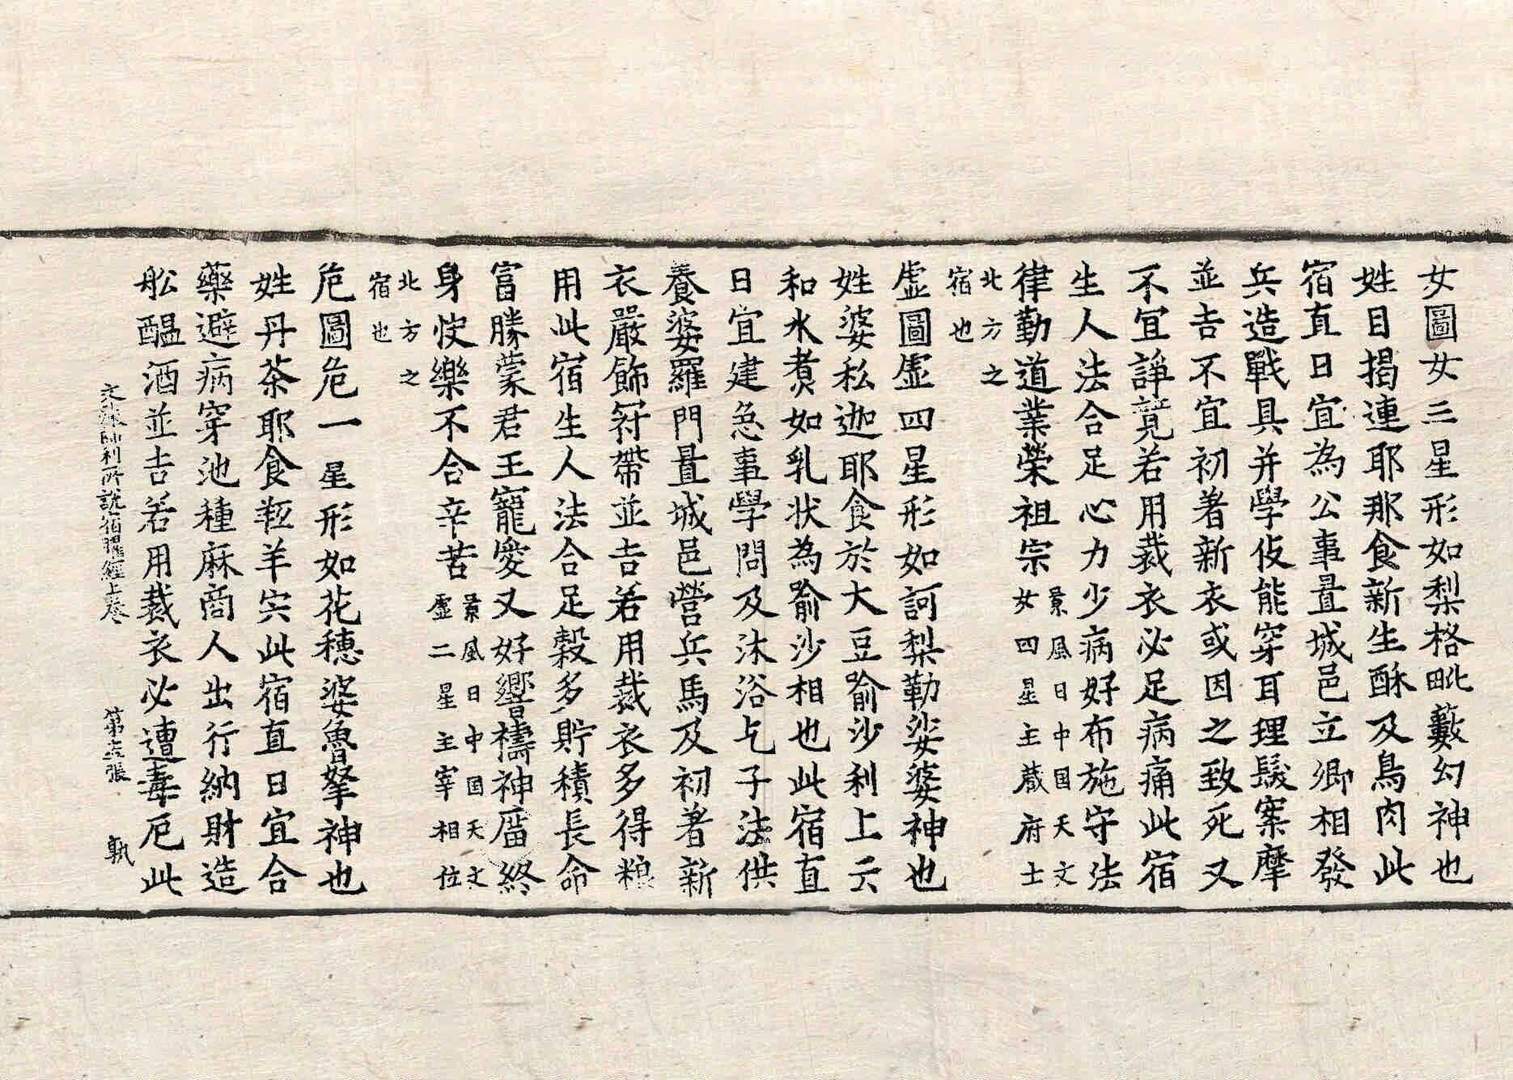 女圖女三星形如梨格毗藪幻神也
姓目揭連耶那食新生酥及鳥肉此
宿直日宜為公事置城邑立卿相發
兵造戰具并學伎能穿耳理髮案摩
並吉不宜初著新衣或因之致死又
不冝諍竟若用裁衣必足病痛此宿
生人法合足心力少病好布施守法
律勤道業榮祖宗
景風日中国天文
女四星主藏府士
北方之
宿也
虛圖虛四星形如訶梨勒娑婆神也
姓婆私迦耶食於大豆喻沙利上云
和水煮如乳状為喻沙相也此宿直
日宜建急事學問及沐浴乞子法供
養婆羅門置城邑營兵馬及初著新
衣嚴飾冠帶並吉若用裁衣多得粮
用此宿生人法合足穀多貯積長命
富勝蒙君王寵愛又好饗禱神廟終
身快樂不合辛苦
景風日中国天文
虛二星主宰相位
北方之
宿也
危圖危一星形如花穗婆魯拏神也
姓丹茶耶食粳羊宍此宿直日宜合
藥避病穿池種麻商人出行納財造
舩醖酒並吉若用裁衣必遭毒厄此
文殊師利所説宿曜經上卷 第張 執